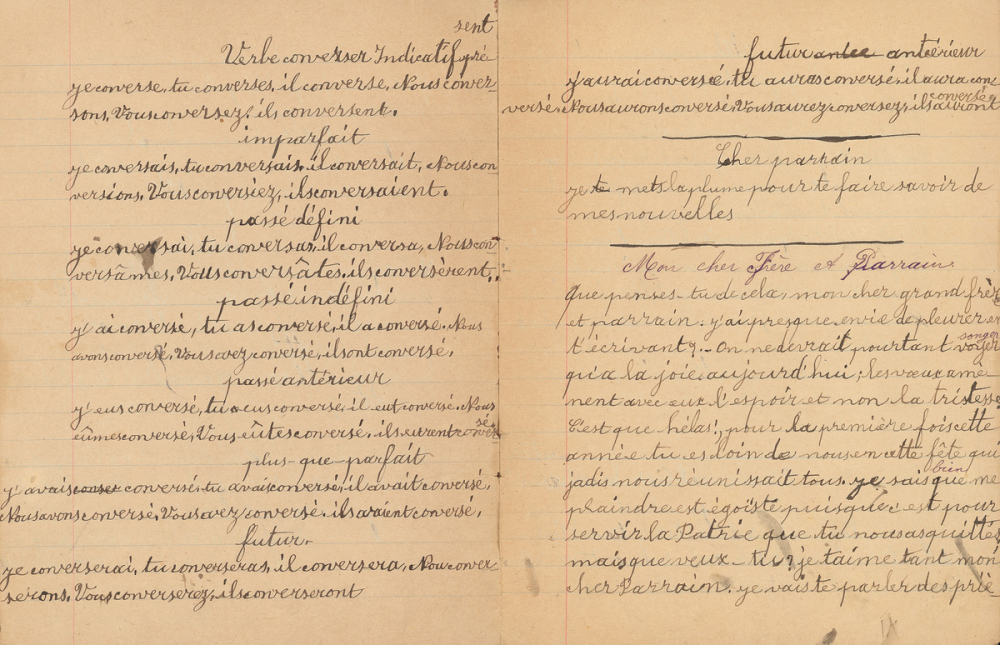 sent
Verbe converser Indicatif pré
je converse, tu converses, il converse, Nous conver
sons, Vous conversez, ils conversent.
imparfait
je conversais, tu conversais, il conversait, Nous con
versions, Vous conversiez, ils conversaient.
passé défini
je conversai, tu conversas, il conversa, Nous con
versâmes, Vous conversâtes, ils conversèrent,
passé indéfini
j'ai conversé, tu as conversé, il a conversé. Nous
avons conversé, Vous avez conversé, ils ont conversé,
passé antérieur
j'eus conversé, tu eus conversé, il eut conversé. Nous
sé.
eûmes conversé, Vous eûtes conversé, ils eurent conver
plus-que-parfait
j'avais conversé, tu avais conversé, il avait conversé,
Nous avons conversé, Vous avez conversé. ils avaient conversé,
futur.
je converserai, tu converseras, il conversera, Nous conver
serons, Vous converserez, ils converseront
futur antee antérieur
j'aurai conversé, tu auras conversé, il aura con
conversé
versé, Nous aurons conversé, Vous aurez conversez, ils auront
Cher parrain
je te mets la plume pour te faire savoir de
mes nouvelles
Mon cher Frère et Parrain.
Que penses-tu de cela, mon cher grand frère
et parrain. j'ai presque envie de pleurer en
t'écrivant?.. On ne devrait pourtant
songer
qu'a là joie aujourd'hui, les vœux amè
nent avec eux l'espoir et non la tristesse
C'est que hélas!, pour la première fois cette
année tu es loin de nous en cette fête qui
bien
jadis nous réunissait tous. je sais que me
plaindre est égoïste puisque c'est pour
servir la Patrie que tu nous as quittés
mais que veux-tu? je t'aime tant mon
cher Parrain. je vais te parler des priè